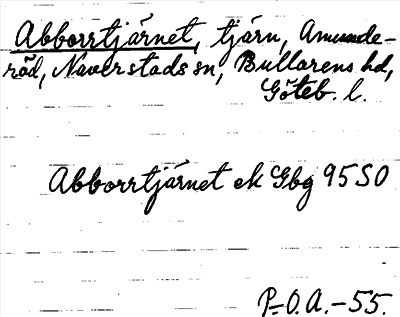 Abborrtjärnet, tjärn, Amunde-
röd, Naverstads sn, Bullarens hd,
Göteb. l.
Abborrtjärnet ek Gbg 95 SO
P.-O.A.-55.